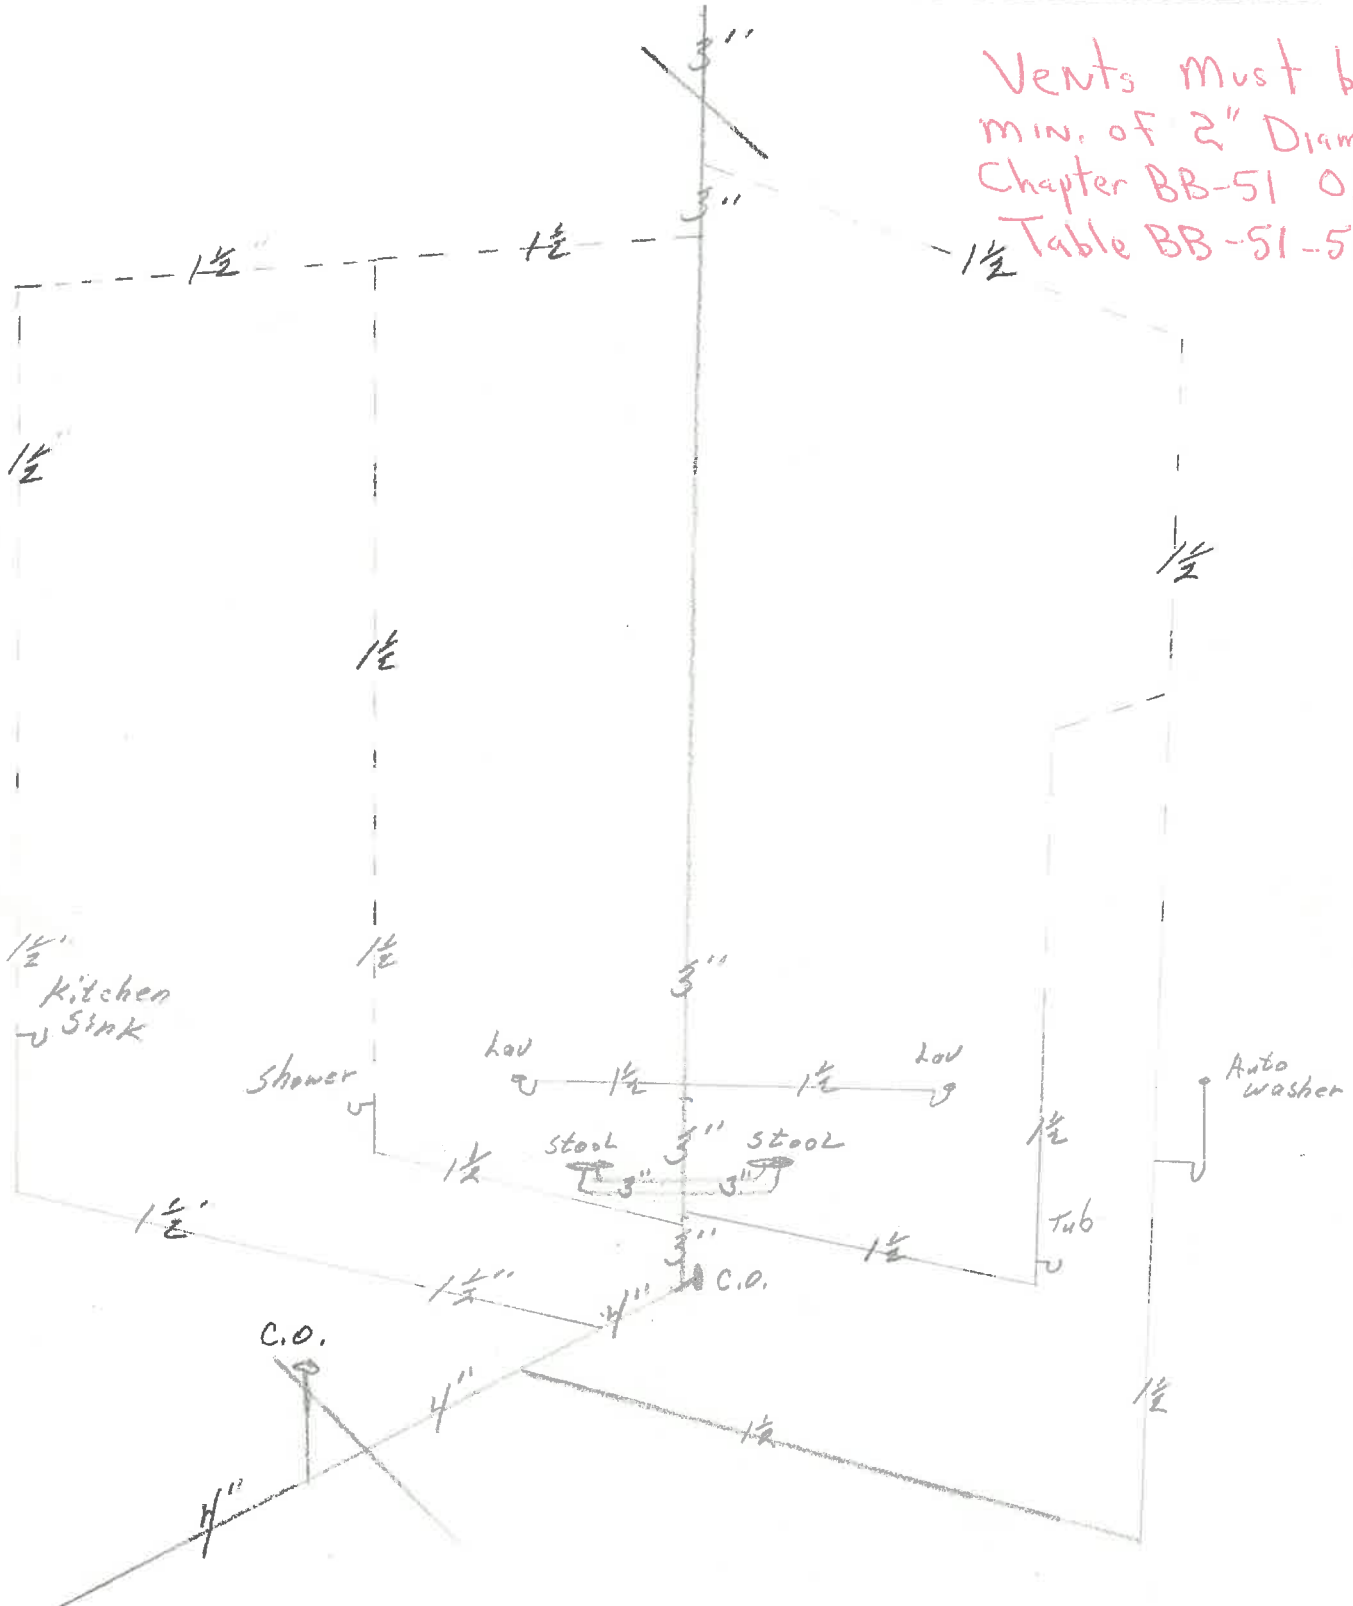 3"
Vents Must b
min. of 2" Diam
Chapter BB-51 O
Table BB-51-5
3"
1½"
1½
1½
1½"
1½
1½
1½"
1½
3"
Kitchen
Sink
Shower
Lav
1½
1½
Lav
Auto
washer
Stool
3"
Stool
1½
1½
3"
3"
1½"
Tub
3"
1½
1½"
4"
C.O.
C.O.
4"
1½
1½
4"